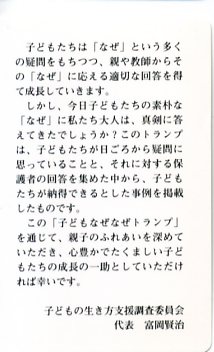 子どもたちは「なぜ」という多く
の疑問をもちつつ、親や教師からそ
の「なぜ」に応える適切な回答を得
て成長していきます。
しかし、今日子どもたちの素朴な
「なぜ」に私たち大人は、真剣に答
えてきたでしょうか？このトランプ
は、子どもたちが日ごろから疑問に
思っていることと、それに対する保
護者の回答を集めた中から、子ども
たちが納得できるとした事例を掲載
したものです。
この「子どもなぜなぜトランプ」
を通じて、親子のふれあいを深めて
いただき、心豊かでたくましい子ど
もたちの成長の一助としていただけ
れば幸いです。
子どもの生き方支援調査委員会
代表　富岡賢治